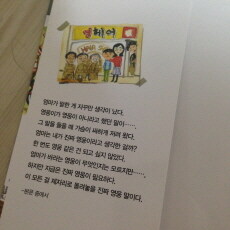 엄마가 말한 게 자꾸만 생각이 났다.
영웅이가 영웅이 아니라고 했던 말이……
그 말을 들을 때 가슴이 싸하게 저려 왔다.
엄마는 내가 진짜 영웅이라고 생각한 걸까?
한 번도 영웅 같은 건 되고 싶지 않았다.
엄마가 바라는 영웅이 무엇인지는 모르지만……
하지만 지금은 진짜 영웅이 필요하다.
이 모든 걸 제자리로 돌려놓을 진짜 영웅 말이다.
-본문 중에서